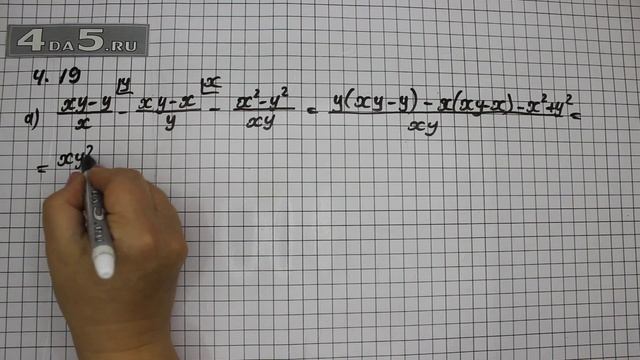 4DA5.RU
4.19
а) (xy-y)/x - (xy-x)/y - (x²-y²)/(xy) = (y(xy-y)-x(xy-x)-x²+y²)/(xy) =
y x
= xy²